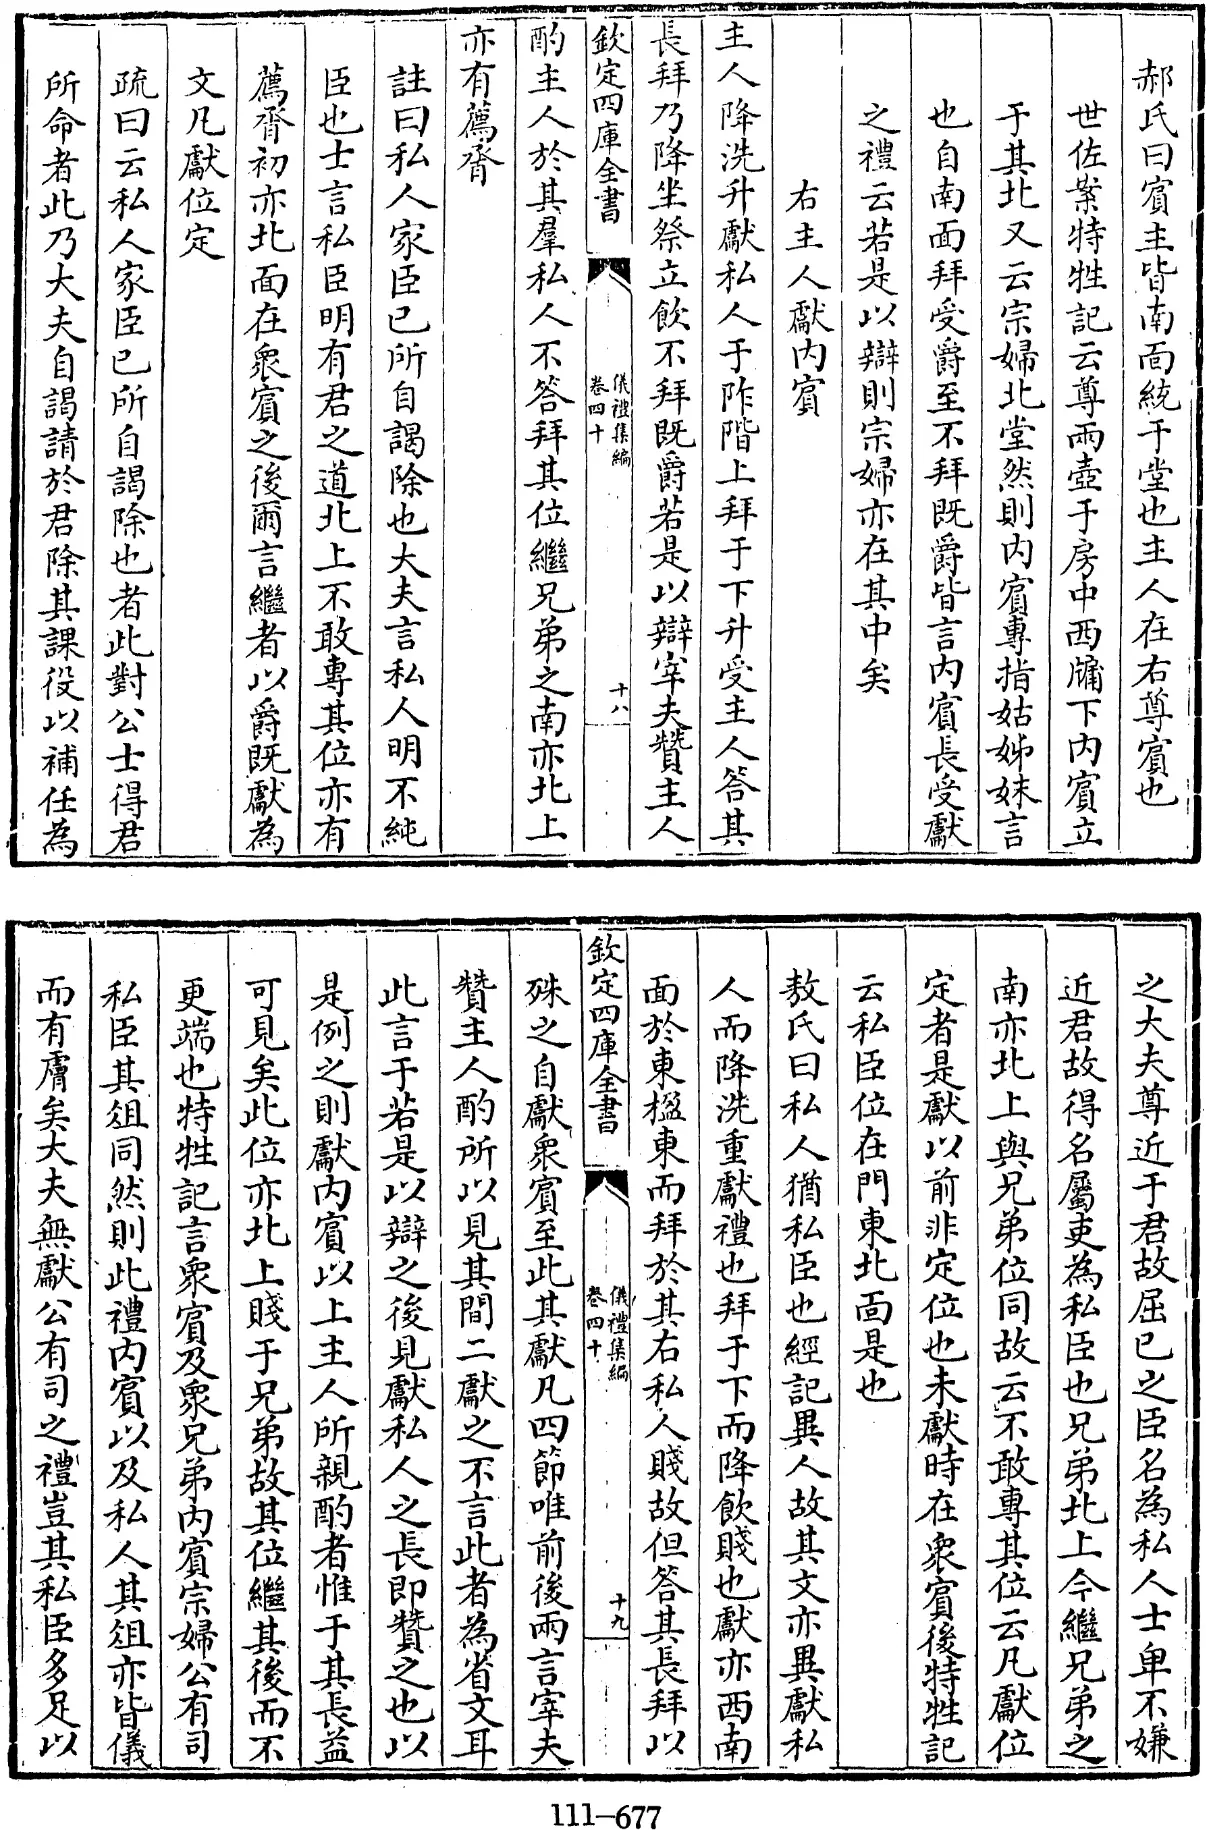 郝氏曰賓主皆南面統于堂也主人在右尊賓也
世佐案特牲記云尊兩壺于房中西牗下内賓立
于其北又云宗婦北堂然則内賓專指姑姊妹言
也自南面拜受爵至不拜既爵皆言内賓長受獻
之禮云若是以辯則宗婦亦在其中矣
右主人獻内賓
主人降洗升獻私人于阼階上拜于下升受主人答其
長拜乃降坐祭立飲不拜既爵若是以辯宰夫贊主人
欽定四庫全書
儀禮集編
卷四十
十八
酌主人於其羣私人不答拜其位繼兄弟之南亦北上
亦有薦脀
註曰私人家臣己所自謁除也大夫言私人明不純
臣也士言私臣明有君之道北上不敢專其位亦有
薦脀初亦北面在衆賓之後爾言繼者以爵既獻為
文凡獻位定
疏曰云私人家臣己所自謁除也者此對公士得君
所命者此乃大夫自謁請於君除其課役以補任為
之大夫尊近于君故屈己之臣名為私人士卑不嫌
近君故得名屬吏為私臣也兄弟北上今繼兄弟之
南亦北上與兄弟位同故云不敢專其位云凡獻位
定者是獻以前非定位也未獻時在衆賓後特牲記
云私臣位在門東北面是也
敖氏曰私人猶私臣也經記異人故其文亦異獻私
人而降洗重獻禮也拜于下而降飲賤也獻亦西南
面於東楹東而拜於其右私人賤故但答其長拜以
欽定四庫全書
儀禮集編
卷四十
十九
殊之自獻衆賓至此其獻凡四節唯前後兩言宰夫
贊主人酌所以見其間二獻之不言此者為省文耳
此言于若是以辯之後見獻私人之長即贊之也以
是例之則獻内賓以上主人所親酌者惟于其長益
可見矣此位亦北上賤于兄弟故其位繼其後而不
更端也特牲記言衆賓及衆兄弟内賓宗婦公有司
私臣其俎同然則此禮内賓以及私人其俎亦皆儀
而有膚矣大夫無獻公有司之禮豈其私臣多足以
111-677